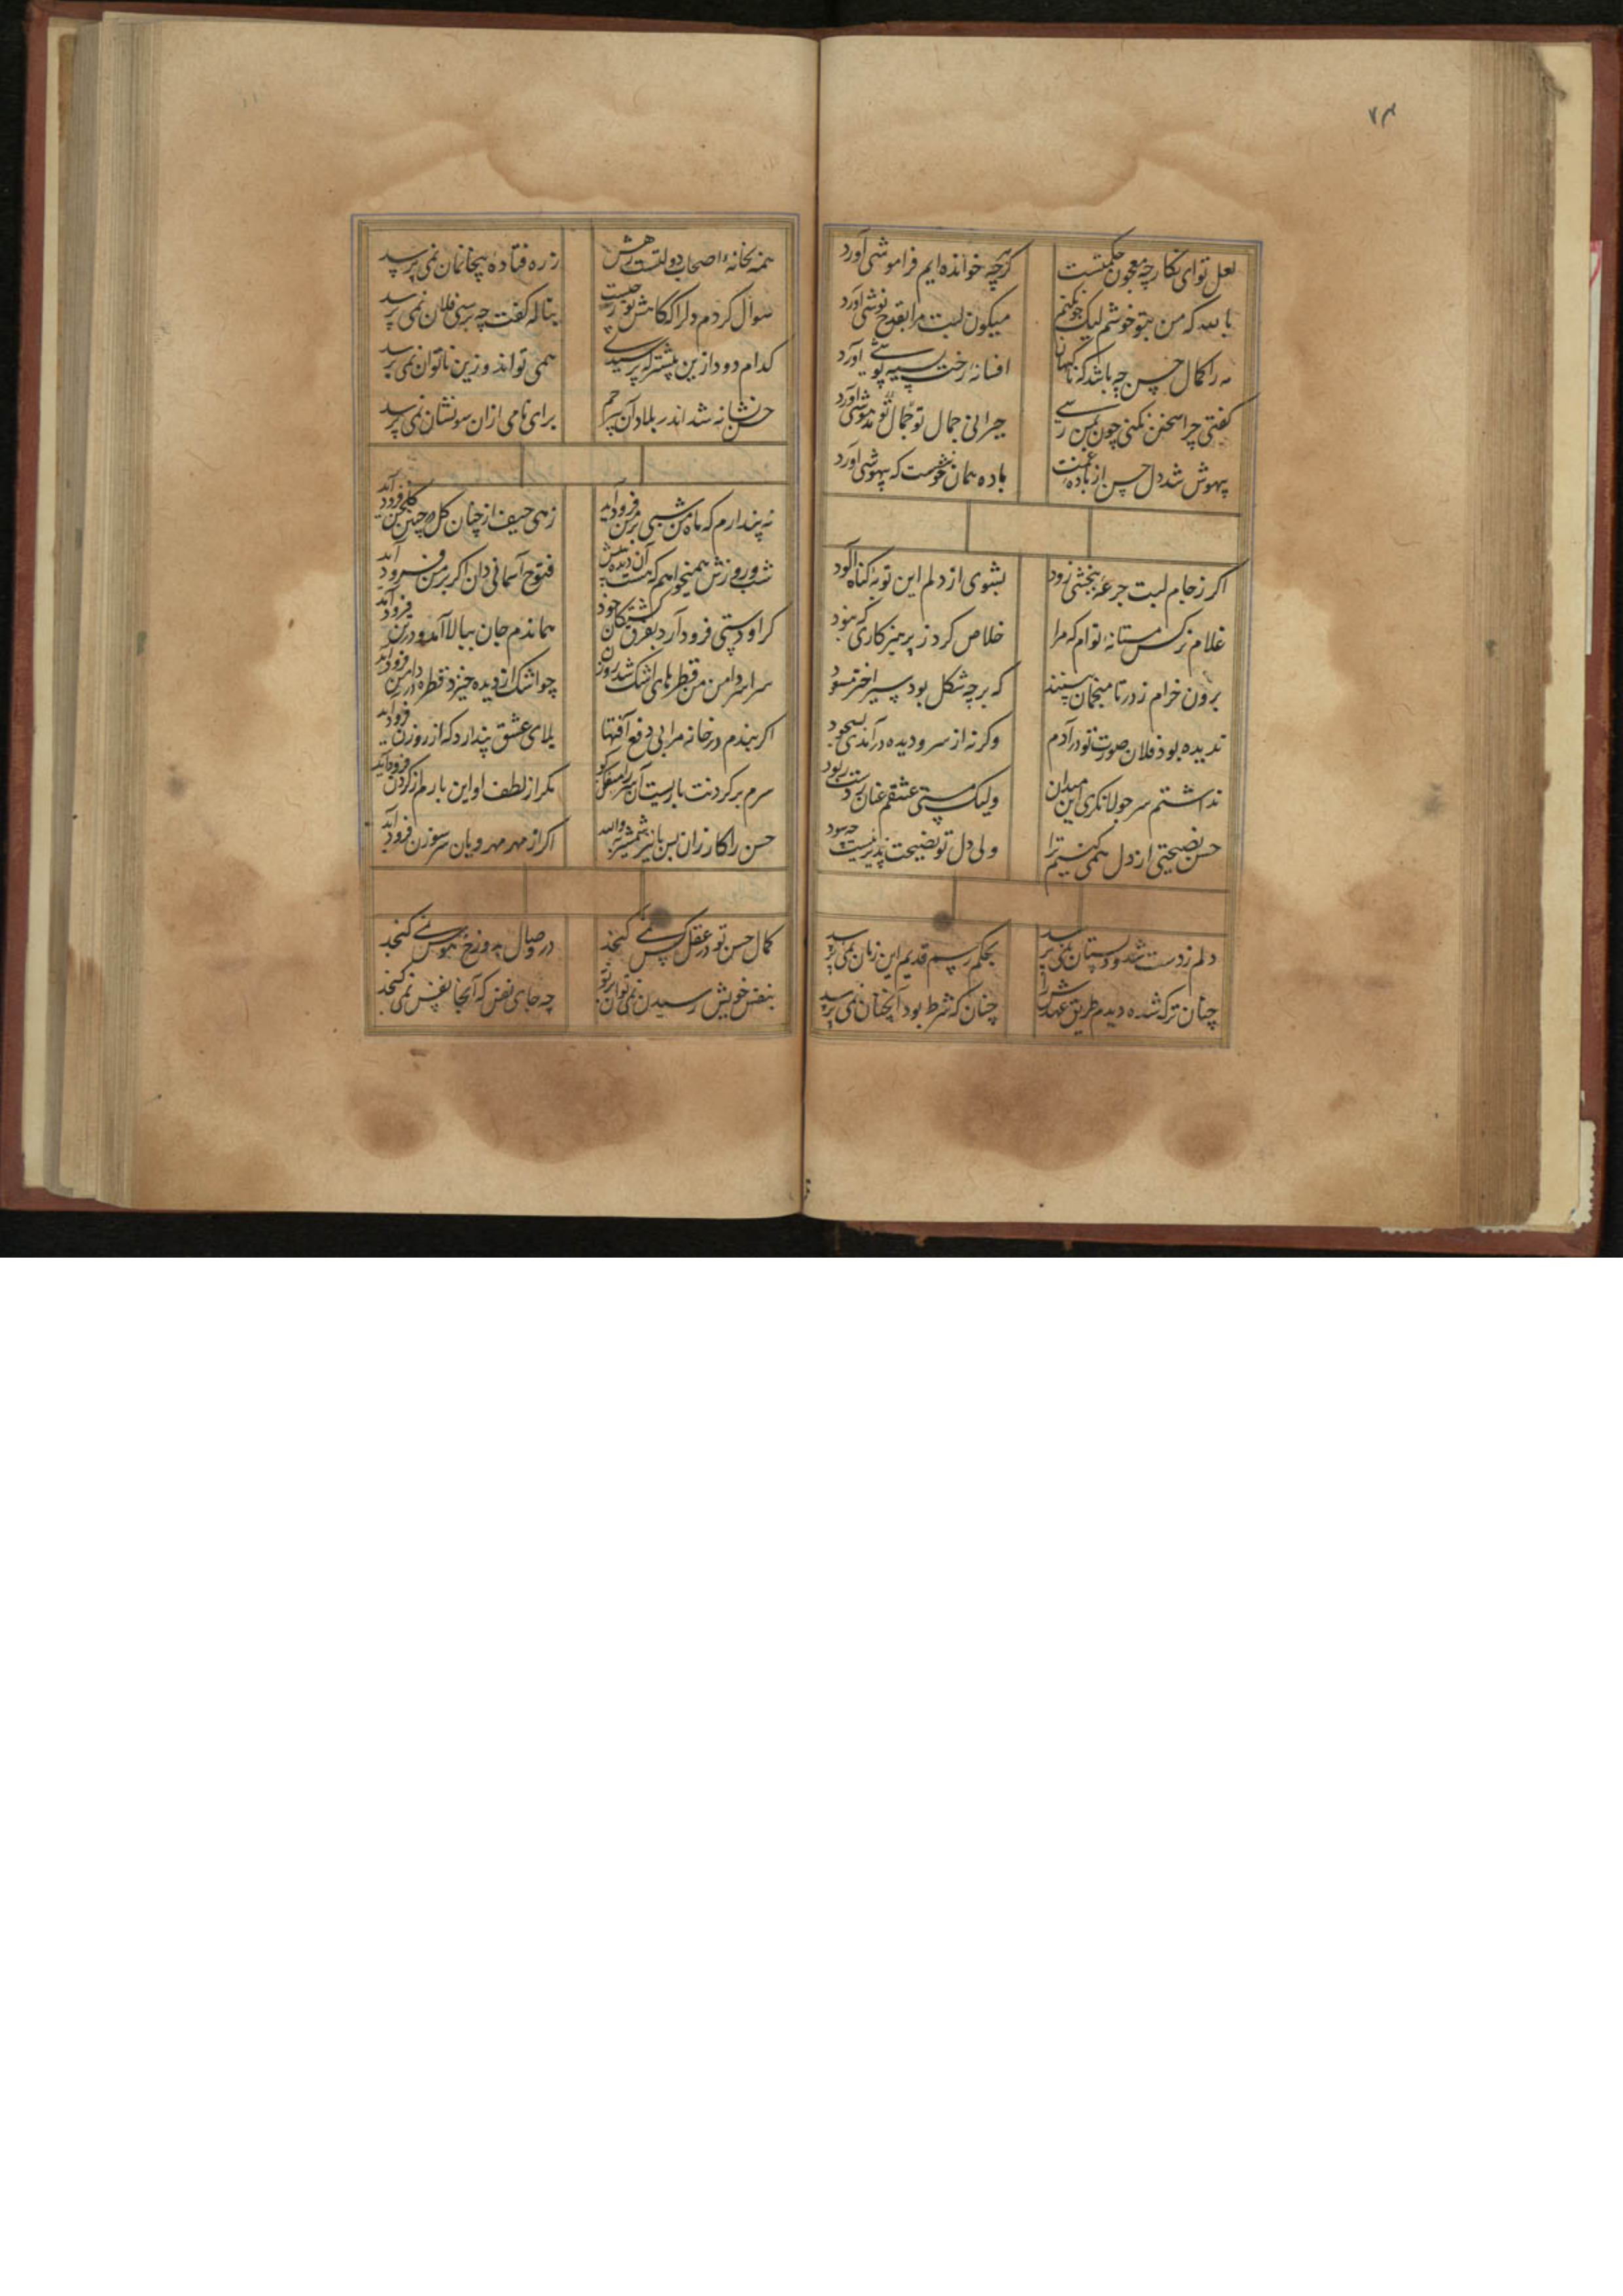 ۷۴
لعل تو ای نکار چه معجون حکمتست کرچه خوانده ایم فراموشی آورد
با سد که من بتو خوشم لیک چونکنم میکون لبت مرا بقدح نوشی آورد
مه را کمال حسن چه باشد که ناکهان افسانه رخت سیه پوشی آورد
کفتی چرا سخن نکنی چون بمن رسی حیرانی جمال تو مدهوشی آورد
بیهوش شد دل حسن از باده غمت باده همان خوشست که بیهوشی آورد
اکر ز جام لبت جرعه ببخشی زود بشوی از دلم این توبه کناه آلود
غلام نرکس مستانه توام که مرا خلاص کرد ز پرهیزکاری که نبود
برون خرام ز در تا منجمان بینند که بر چه شکل بود سیر اختر مسعود
ندیده بود فلان صورت تو در آدم وکرنه از سر و دیده در آمدی بسجود
نداشتم سر جولانکری این میدان ولیک مستی عشقم عنان ز دست ربود
حسن نصیحتی از دل همی کنیم ترا ولی دل تو نصیحت پذیر نیست چه سود
دلم ز دست شد و دلستان نمی پرسد بحکم رسم قدیم این زمان نمی پرسد
چنان ترک شده دیدم طریق عهدش را چنان که شرط بود آنچنان نمی پرسد
همه بخانه اصحاب دولتست رهش ز ره فتاده بیخانمان نمی پرسد
سوال کردم دلرا که کاهش تو ز چیست بناله کفت چه پرسی فلان نمی پرسد
کدام دود ازین پیشتر که پرسیدی همی تواند و زین ناتوان نمی پرسد
حسن نشانه شد اندر بلا و آن بیرحم برای نامی ازان سو نشان نمی پرسد
نه پندارم که ماه من شبی بر من فرود آید زهی حیف از چنان کل چین فرود آید
شب و روزش همیخواهم که هست آن دیده فتوح آسمانی دان اکر بر من فرود آید
کر او دستی فرود آرد بفرق کشتکان خود بماندم جان ببالا آمد و در تن فرود آید
سراسر دامن من قطرهای اشک شد روزن چو اشک از دیده خیزد قطره در دامن فرود آید
اکر بندم در خانه مرا بی دفع آفتها بلای عشق پندارد که از روزن فرود آید
سرم بر کردنت باریست آن سر را سفکن کو مکر از لطف او این بارم از کردن فرود آید
حسن را کار زان بس با سر شمشیر والله اکر از مهر مهرویان سر سوزن فرود آید
کمال حسن تو در عقل کس نمی کنجد در وصال به دوزخ هوس نمی کنجد
بنفس خویش رسیدن نمی توان بر تو چه جای نفس که آنجا نفس نمی کنجد